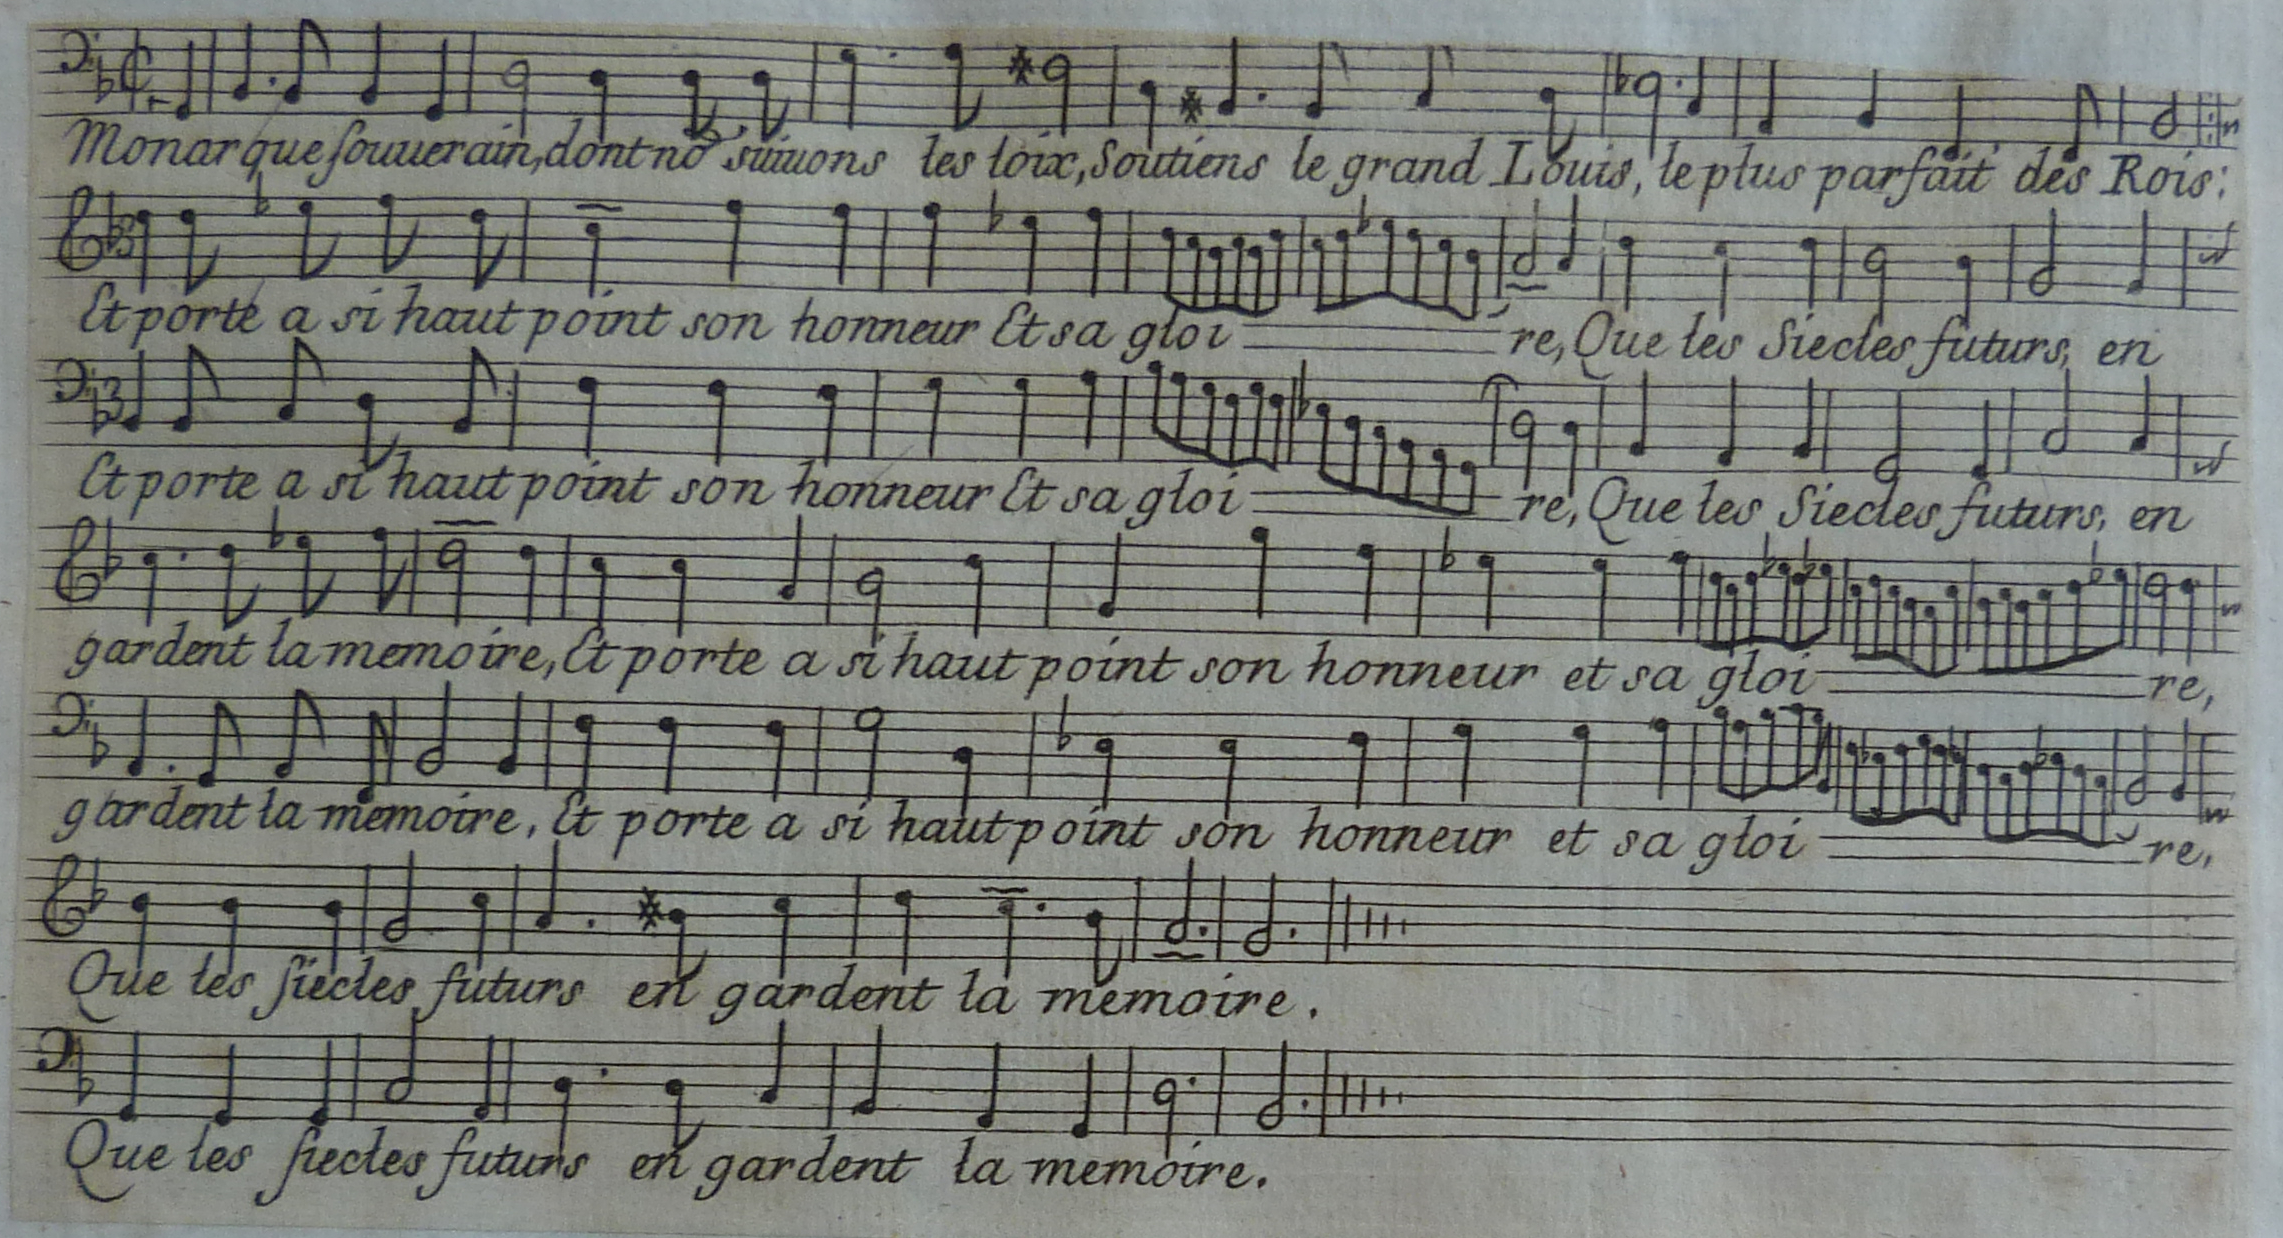 Monarque souuerain, dont no⁹ suiuons les loix, Soutiens le grand Louis, le plus parfait des Rois:
Et porte a si haut point son honneur Et sa gloire, Que les Siecles futurs, en
Et porte a si haut point son honneur Et sa gloire, Que les Siecles futurs, en
gardent la memoire, Et porte a si haut point son honneur et sa gloire,
gardent la memoire, Et porte a si haut point son honneur et sa gloire,
Que les siecles futurs en gardent la memoire.
Que les siecles futurs en gardent la memoire.